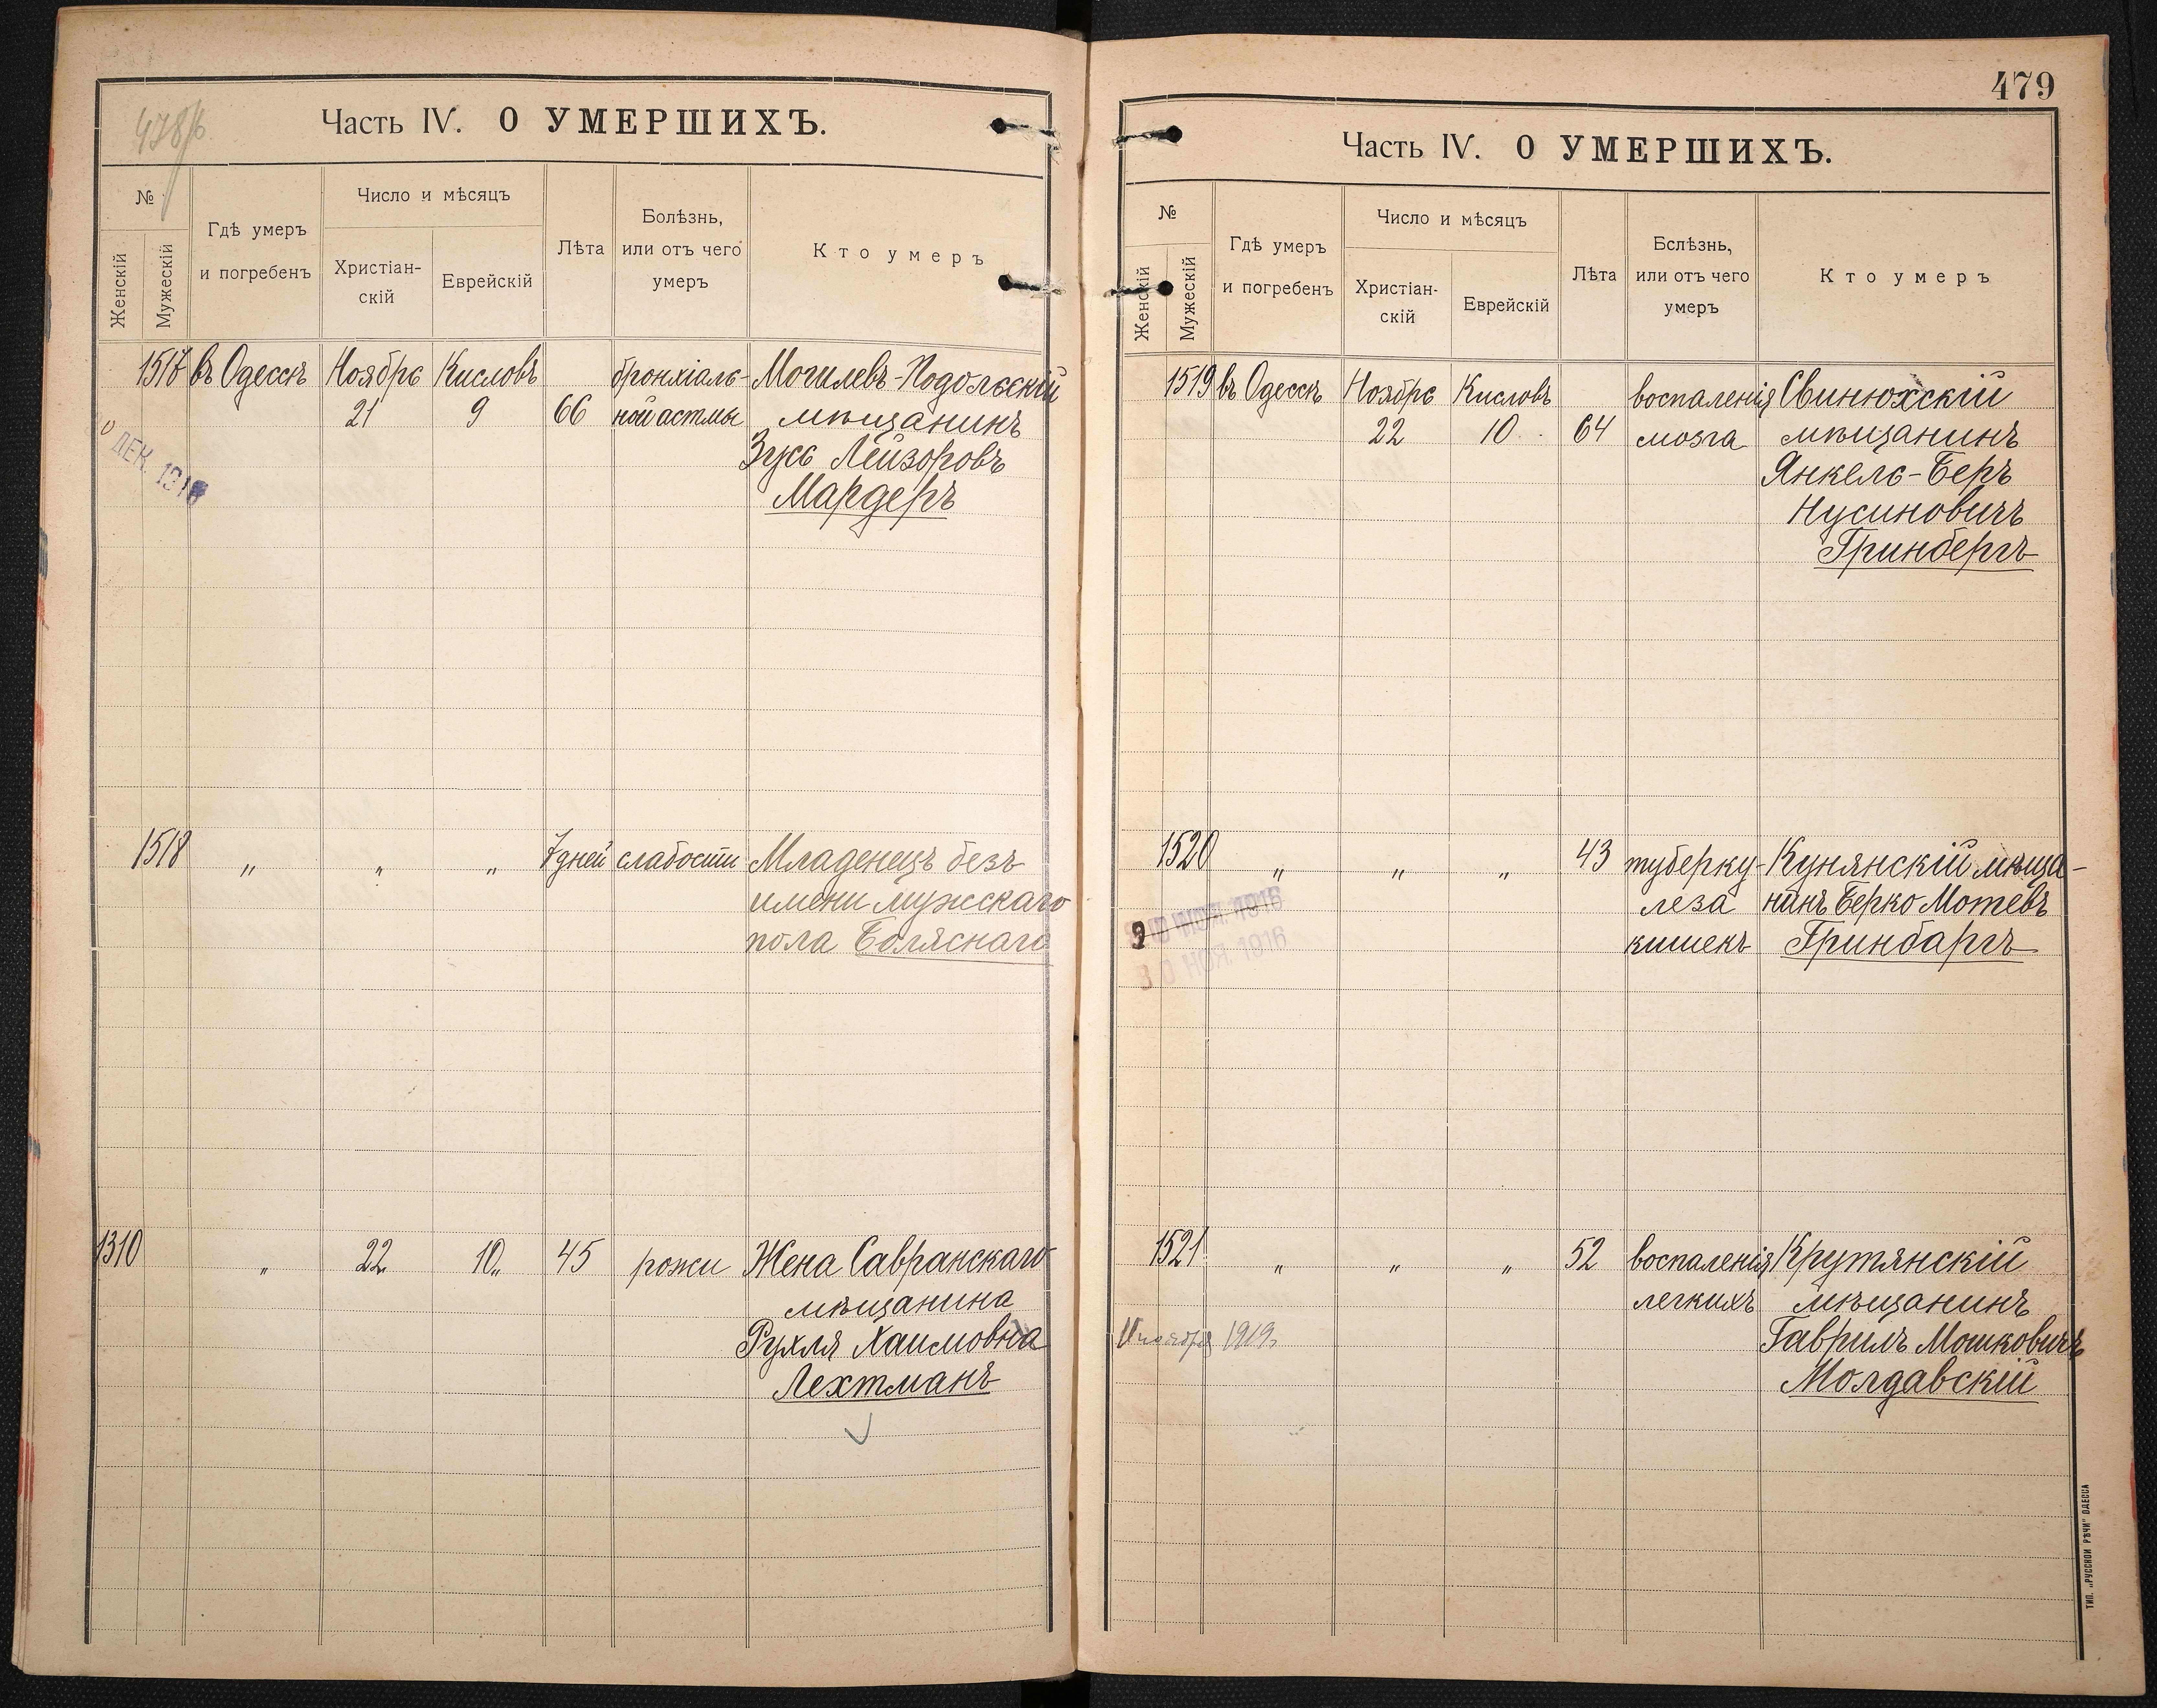 478/б.
Часть IV. О УМЕРШИХЪ.
№
Женскій
Мужескій
Гдѣ умеръ
и погребенъ
Число и мѣсяцъ
Христіан-
скій
Еврейскій
Лѣта
Болѣзнь,
или отъ чего
умеръ
Кто умеръ
1517 въ Одессѣ Ноябрь Кисловъ бронхіаль- Могилевъ-Подольскій
21 9 66 ной астмы мѣщанинъ
Зусь Лейзоровъ
Мардеръ
ДЕК. 1916
1518 „ „ „ 7 дней слабости Младенецъ безъ
имени мужскаго
пола Боляснаго
1310 „ 22 10 „ 45 рожи Жена Савранскаго
мѣщанина
Рухля Хаимовна
Лехтманъ
479
Часть IV. О УМЕРШИХЪ.
№
Женскій
Мужескій
Гдѣ умеръ
и погребенъ
Число и мѣсяцъ
Христіан-
скій
Еврейскій
Лѣта
Бслѣзнь,
или отъ чего
умеръ
Кто умеръ
1519 въ Одессѣ Ноябрь Кисловъ воспаленія Свинюхскій
22 10 64 мозга мѣщанинъ
Янкель-Беръ
Нусиновичъ
Гринбергъ
1520 „ „ „ 43 туберку- Кунянскій мѣща-
леза нинъ Берко Мотевъ
кишекъ Гринбаргъ
30 НОЯ. 1916
1521 „ „ „ 52 воспаленія Крутянскій
легкихъ мѣщанинъ
1919 Гаврилъ Мошковичъ
Молдавскій
ТИП. „РУССКОЙ РѢЧИ" ОДЕССА